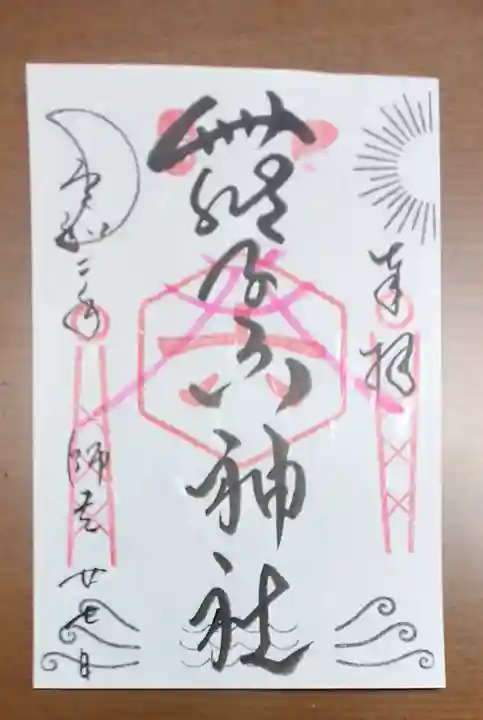 奉拝
舞子六神社
令和二年 師走 廿七日